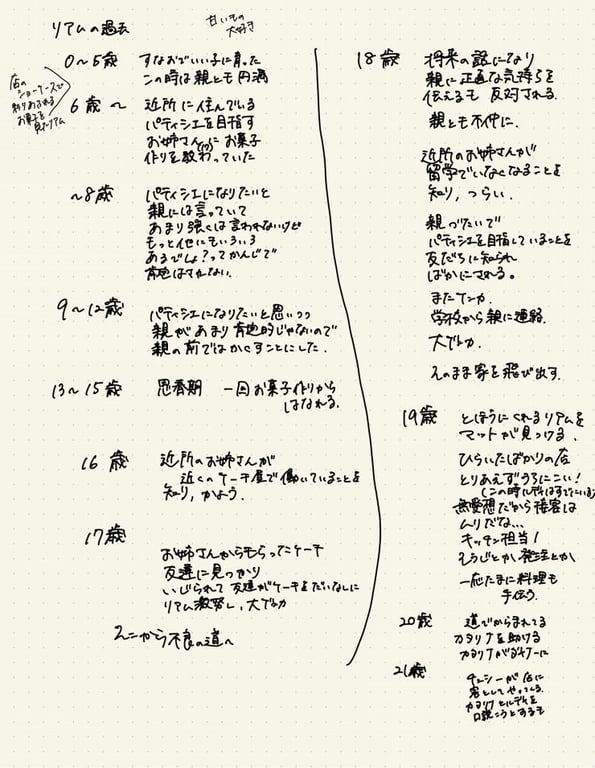 リアムの過去
甘いもの
大好き
店の
ショーケースで
お菓子を
見たリアム
0～5歳 すなおでいい子に育った
この時は親とも円満
6歳～ 近所に住んでいる
パティシエを目指す
お姉さんにお菓子
作りを教わっていた
～8歳 パティシエになりたいと
親には言っていて
あまり強くは言われないけど
もっと他にもいろいろ
あるでしょ?ってかんじで
9～12歳 パティシエになりたいと思いつつ
親があまり育地的じゃないので
親の前ではかくすことにした.
13～15歳 思春期 一回お菓子作りから
はなれる.
16歳 近所のお姉さんが
近くのケーキ屋で働いていることを
知り,かよう.
17歳
お姉さんからもらったケーキ
友達に見つかり
いじられて友達がケーキをだいなしに
リアム激怒し,大ゲンカ
そこから不良の道へ
18歳 将来の話になり
親に正直な気持ちを
伝えるも 反対される.
親とも不仲に.
近所のお姉さんが
留学でいなくなることを
知り,つらい.
親づたいで
パティシエを目指していることを
友だちに知られ
ばかにされる。
またケンカ.
学校から親に連絡.
大ゲンカ.
そのまま家を飛び出す.
19歳 とほうにくれるリアムを
マットが見つける.
ひらいたばかりの店
とりあえずうちにこい!
(この時ルディはすでにいる)
無愛想だから接客は
ムリだな...
キッチン担当!
そうじとか発注とか
一応たまに料理も
手伝う.
20歳 道でからまれてる
カタリナを助ける
21歳 チェシーが店に
客としてやってくる.
口説こうとするも